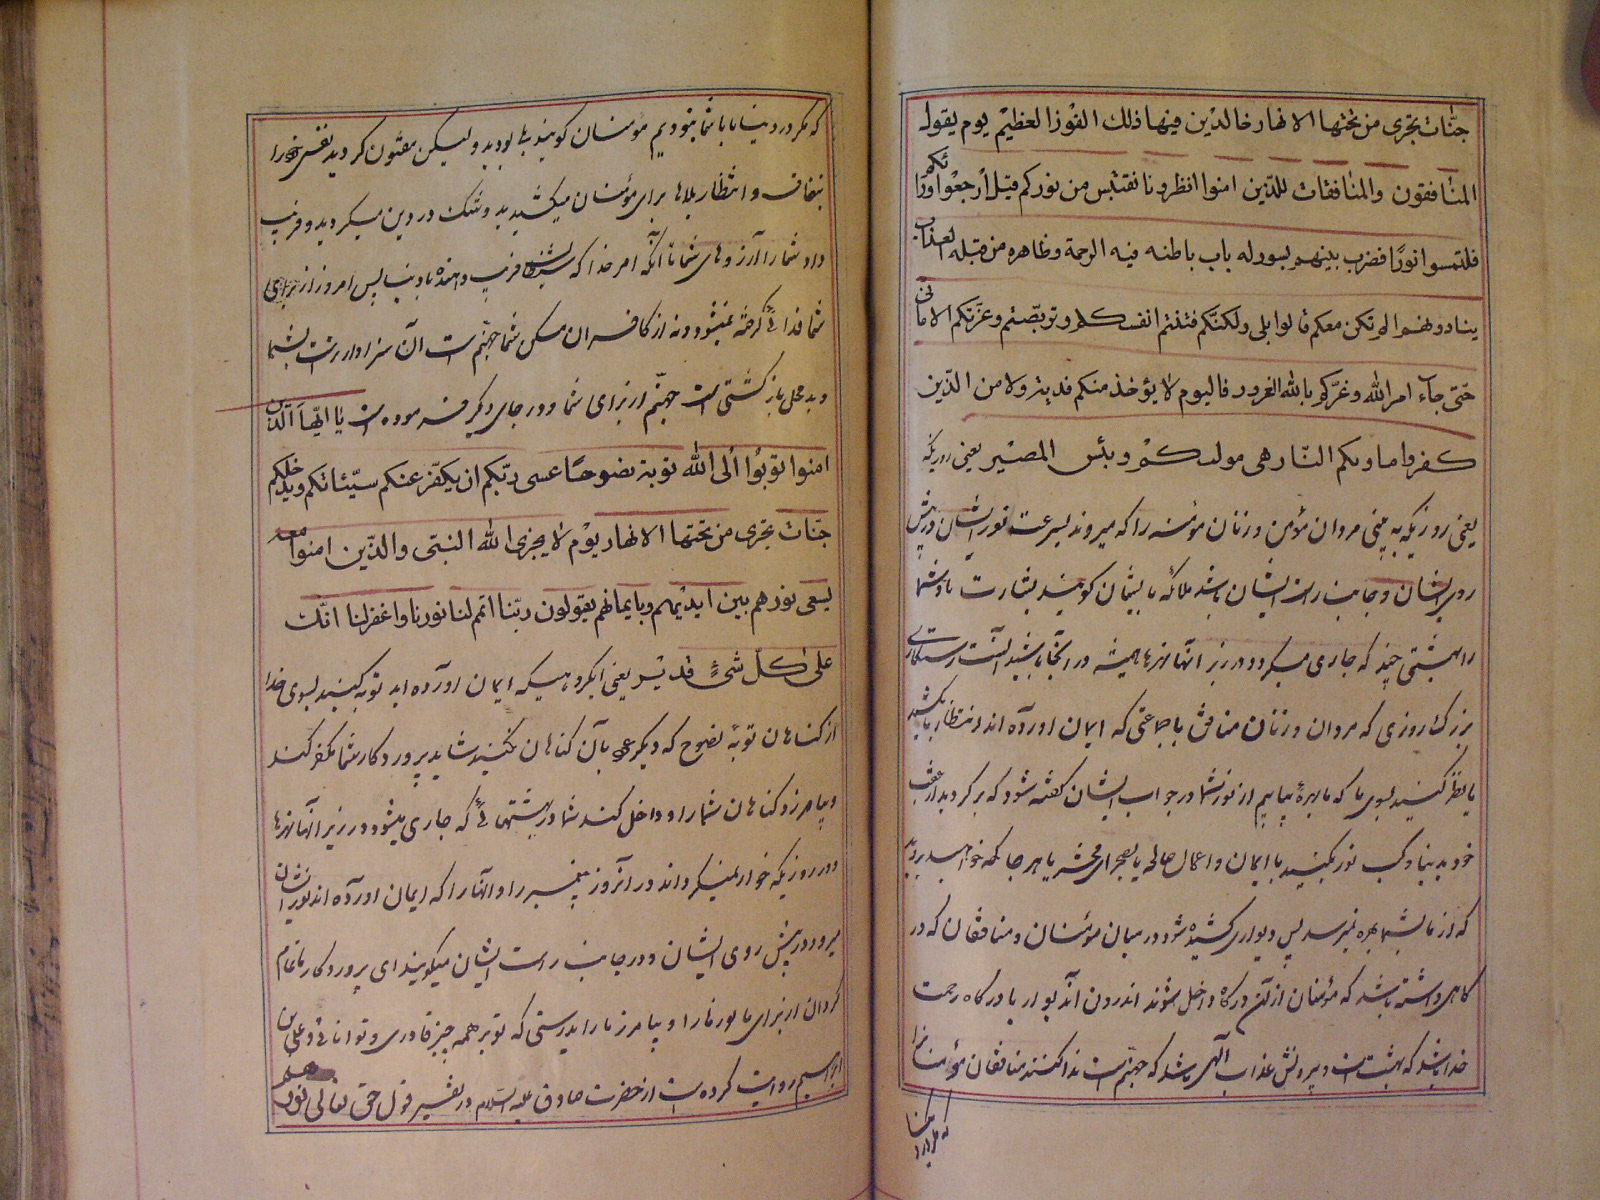 جنّات تجری من تحتها الانهار خالدین فیها ذلك الفوز العظیم یوم یقول
المنافقون والمنافقات للذین امنوا انظرونا نقتبس من نورکم قیل ارجعوا ورائکم
فالتمسوا نورًا فضرب بینهم بسور له باب باطنه فیه الرحمة وظاهره من قبله العذاب
ینادونهم الم نکن معکم قالوا بلی ولکنّکم فتنتم انفسکم وتربّصتم وغرّتکم الامانی
حتّی جاء امر الله وغرّکم بالله الغرور فالیوم لا یؤخذ منکم فدیة ولا من الذین
کفروا ماویکم النّار هی مولیکم وبئس المصیر یعنی روزیکه
یعنی روزیکه به بینی مردان مؤمن و زنان مؤمنه را که میروند بسرعت نور ایشان در پیش
روی ایشان و جانب راست ایشان باشد ملائکه بایشان کویند بشارت باد شما
را بهشتی چند که جاری میکردد در زیر انها نهرها همیشه در انجا باشید اینست رستکاری
بزرک روزی که مردان و زنان منافق با جماعتی که ایمان اورده اند انتظار ما بکشید
یا نظر کنید بسوی ما که ما بهرهٔ بیابیم از نور شما در جواب ایشان کفته شود که برکردید از عقب
خود بدنیا و کسب نور بکنید با ایمان و اعمال صالحه یا بصحرای محشر یا هر جا که خواهید بروید
که از ما بشما بهره نمیرسد پس دیواری کشیده شود در میان مؤمنان و منافقان که در
کاهی داشته باشد که مؤمنان از آن درکاه داخل شوند اندرون آندیوار یا درکاه رحمت
خدا باشد که بهشت است و بیرونش عذاب الهی باشد که جهنّم است ندا کنند منافقان مؤمنانرا
که مکر در دنیا ما با شما نبودیم مؤمنان کویند بلی بودید ولیکن مفتون کردید نفس خود را
بنفاق و انتظار بلاها برای مؤمنان میکشیدید و شک در دین میکردید و فریب
داد شما را آرزوهای شما تا آنکه امر خدا که فریب دهنده باو پس امروز از برای
شما فدائی کرفته نمیشود و نه از کافران مسکن شما جهنّم است آن سزاوارتر است بشما
و بد محل بازکشتی است جهنّم از برای شما و در جای دیکر فرموده است یا ایّها الّذین
امنوا توبوا الی الله توبة نصوحًا عسی ربّکم ان یکفّر عنکم سیّئاتکم ویدخلکم
جنّات تجری من تحتها الانهار یوم لا یخزی الله النبیّ والذین امنوا معه
یسعی نورهم بین ایدیهم وبایمانهم یقولون ربّنا اتمم لنا نورنا واغفرلنا انّك
علی کلّ شیءٍ قدیر یعنی ایکروهیکه ایمان اورده اید توبه کنید بسوی خدا
از کناهان توبهٔ نصوح که دیکر عود بآن کناهان نکنید شاید پروردکار شما تکفیر کند
و بیامرزد کناهان شما را و داخل کند شما را در بهشتهائی که جاری میشود در زیر انها نهرها
در روزیکه خوار نمیکرداند در انروز پیغمبر را و انها را که ایمان اورده اند نور ایشان
میرود در پیش روی ایشان و در جانب راست ایشان میکویند ای پروردکار ما تمام
کردان از برای ما نور ما را و بیامرز ما را بدرستی که تو بر همه چیز قادری و توانائی و علی بن
ابراهیم روایت کرده است از حضرت صادق علیه السلام در تفسیر قول حق تعالی نورهم